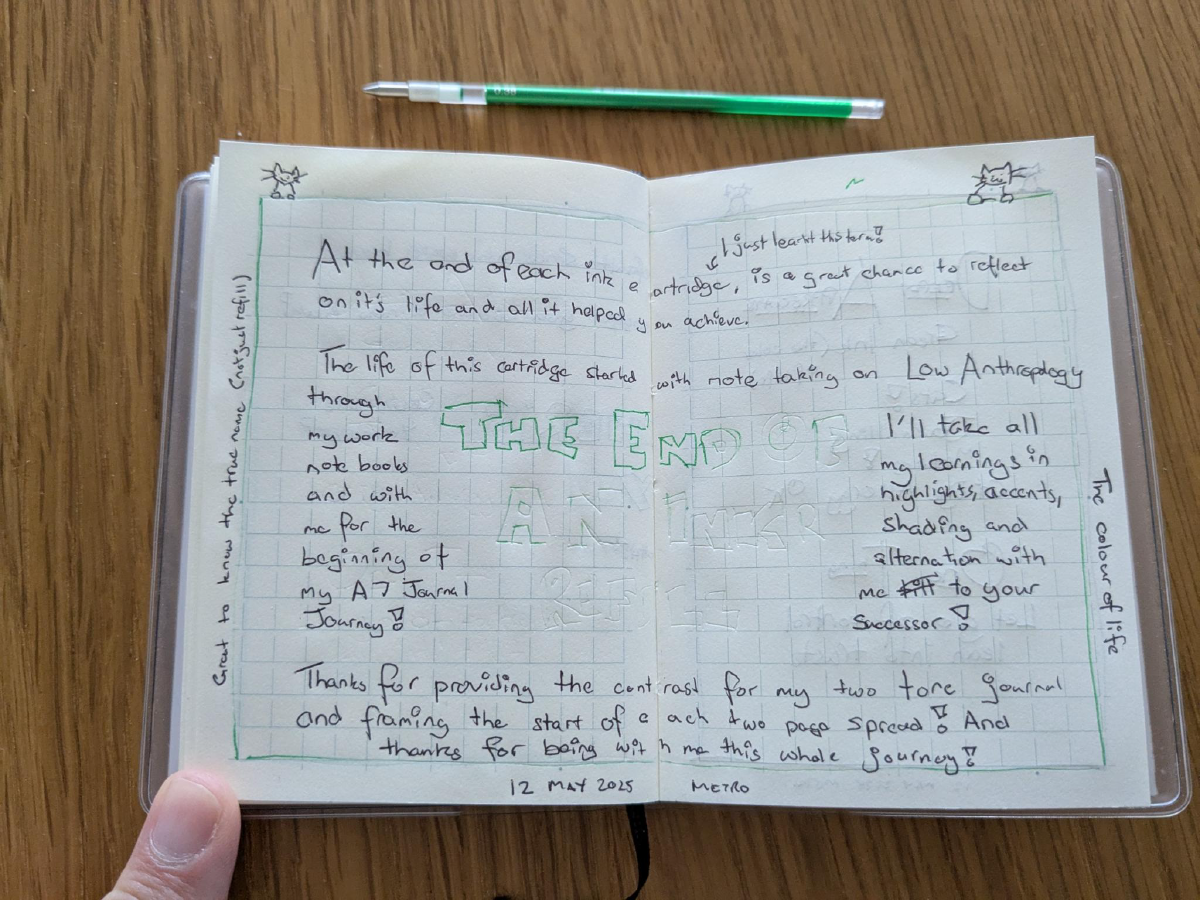 I just learnt this term!
At the end of each ink cartridge, is a great chance to reflect
on it's life and all it helped you achieve.
The life of this cartridge started with note taking on Low Anthropology
through
my work
note books
and with
me for the
beginning of
my A7 Journal
Journey!
THE END OF
AN INK
REFILL
I'll take all
my learnings in
highlights, accents,
shading and
alternation with
me to your
Successor!
Thanks for providing the contrast for my two tone journal
and framing the start of each two page spread! And
thanks for being with me this whole journey!
12 MAY 2025 METRO
Great to know the true name (not just refill)
The colour of life
0.38